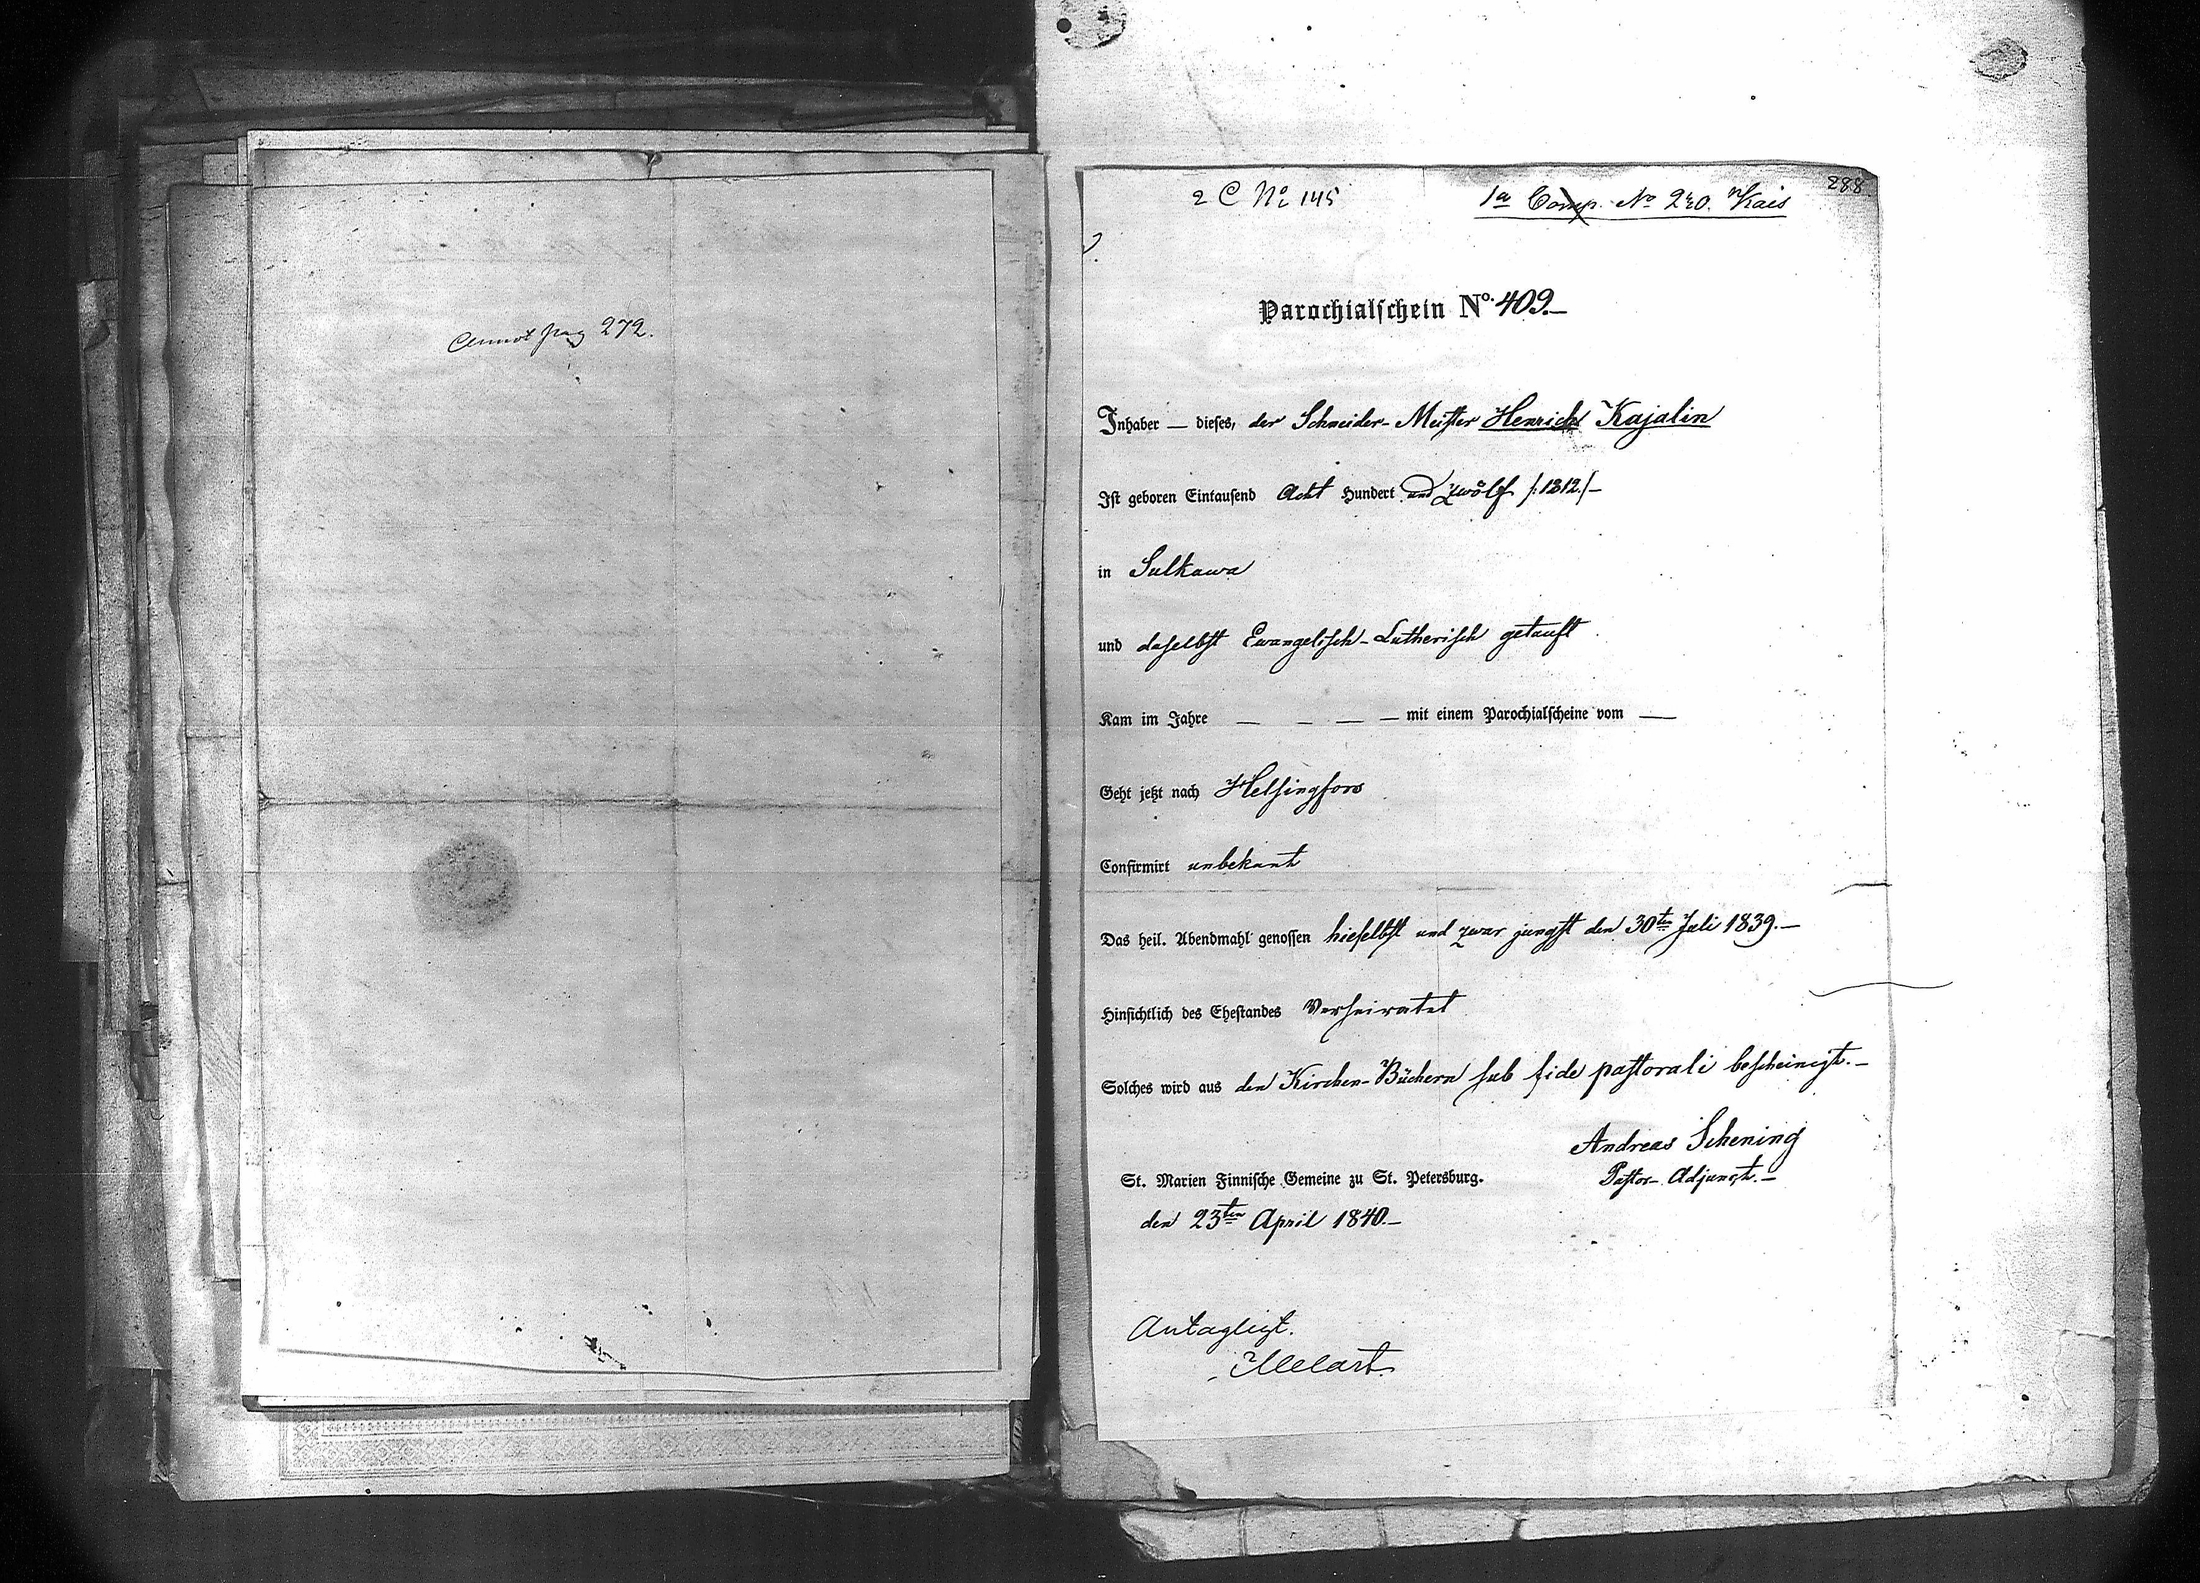 Annot pag 272.
288
2 C No 145
1a Comp. No 220. Kais
Parochialschein No. 409.—
Inhaber — dieses, der Schneider-Meister Henrich Kajalin
Ist geboren Eintausend Acht Hundert und zwölf /:1812:/—
in Sulkawa
und daselbst Ewangelisch-Lutherisch getauft
Kam im Jahre — — — — mit einem Parochialscheine vom —
Geht jetzt nach Helsingfors
Confirmirt unbekant
Das heil. Abendmahl genossen hieselbst und zwar jungst den 30ten Juli 1839.—
Hinsichtlich des Ehestandes Verheiratet
Solches wird aus den Kirchen-Büchern sub fide pastorali bescheinigt.—
Andreas Schening
Pastor-Adjunct.—
St. Marien Finnische Gemeine zu St. Petersburg.
den 23ten April 1840.—
Antagligt.
Melart.